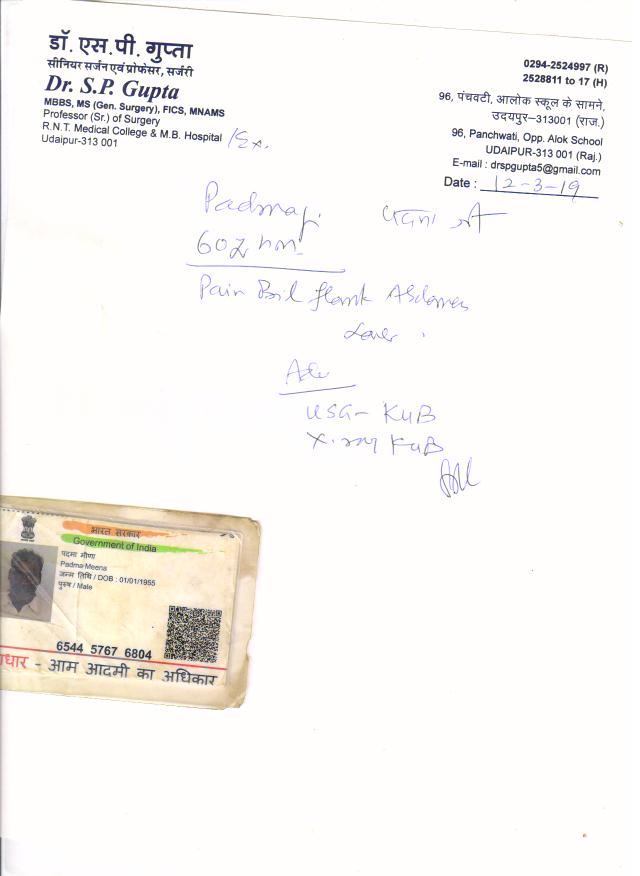 डॉ. एस.पी. गुप्ता
सीनियर सर्जन एवं प्रोफेसर, सर्जरी
Dr. S.P. Gupta
MBBS, MS (Gen. Surgery), FICS, MNAMS
Professor (Sr.) of Surgery
R.N.T. Medical College & M.B. Hospital /Ex.
Udaipur-313 001
0294-2524997 (R)
2528811 to 17 (H)
96, पंचवटी, आलोक स्कूल के सामने,
उदयपुर–313001 (राज.)
96, Panchwati, Opp. Alok School
UDAIPUR-313 001 (Raj.)
E-mail : drspgupta5@gmail.com
Date : 12-3-19
Padmaji पदमा जी
Pain Bil flank Abdomen
USG- KUB
X-ray KUB
भारत सरकार
Government of India
पदमा मीणा
Padma Meena
जन्म तिथि / DOB : 01/01/1955
पुरुष / Male
6544 5767 6804
आधार - आम आदमी का अधिकार